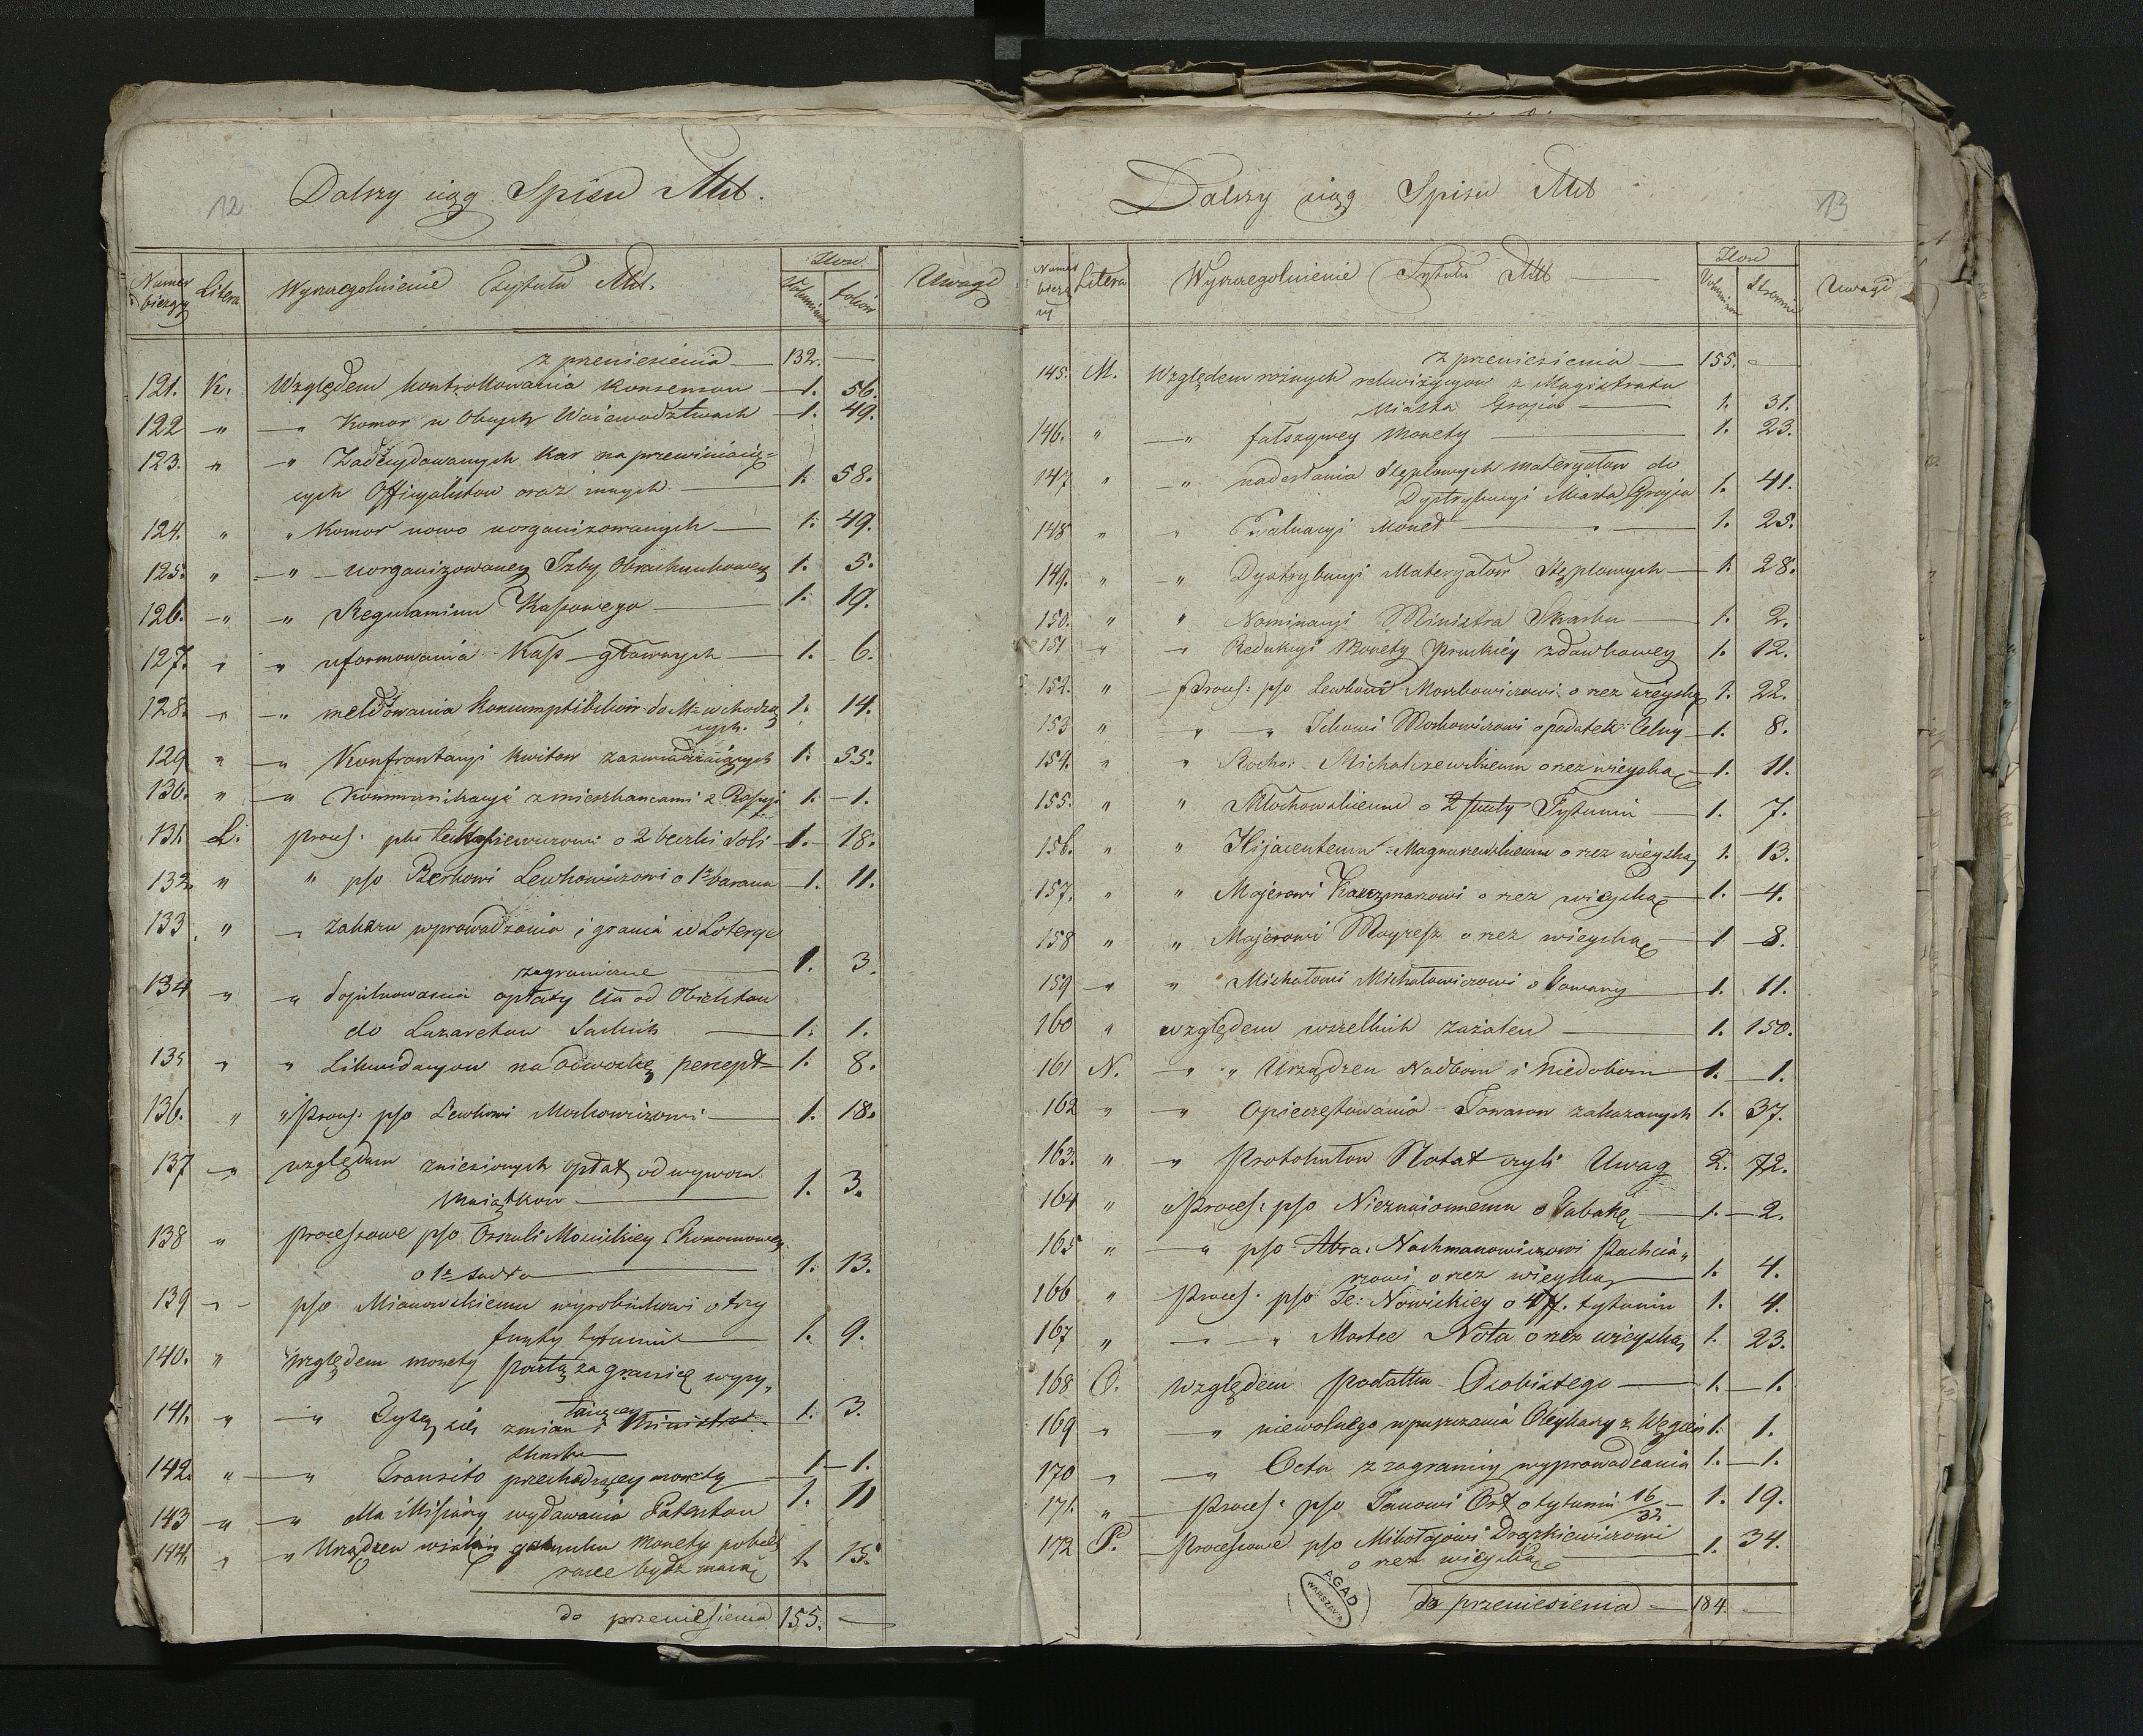 12
Dalszy ciąg Spisu Akt.
Numer bieżący
Litera
Wyszczególnienie Tytułu Akt.
Ilość
Voluminów
foliów
Uwagi
z przeniesienia — 132. —
121. K. Względem kontrollowania konsensow — 1. 56.
122 „ — Komor w Obcych Woiewodztwach — 1. 49.
123. „ — „ Zadecydowanych Kar na przewiniaią=
cych Officyalistow oraz innych — 1. 58.
124. „ „ Komor nowo uorganizowanych — 1. 49.
125. „ — „ — uorganizowaney Izby Obrachunkowey 1. 5.
126. „ — „ Regulaminu Kassowego — 1. 19.
127. „ „ uformowania Kass głownych — 1. 6.
128. „ — „ meldowania Konsumptibiliow do M. wchodzą 1. 14.
cych.
129 „ — „ Konfrontacyi kwitow zaswiadczaiących 1. 55.
130. „ — „ Kommunikacyi z mieszkancami z Rossyi 1. — 1.
131. L. process. pko 2 beczki soli — 1. — 18.
132. „ „ pso Berkowi Lewkowiczowi o 1 barana — 1. 11.
133. „ — zakazu wprowadzania i grania w Loterye
zagraniczne — 1. 3.
134 „ — „ dopilnowania opłaty cła od Obiektow
do Lazaretow — 1. 1.
135 „ „ Likwidacyow na odwozkę percept= 1. 8.
136. „ „ Process. pso Lewkowi Moskowiczowi — 1. 18.
137 — „ względem zniesionych opłat od wywozu
Maiątkow — 1. 3.
138 „ processowe pso Orszuli Mosiickiey Ekonomowey
o 1 sadła — 1. 13.
139 — „ — pso Mianowskiemu wyrobnikowi o trzy
funty tytuniu — 1. 9.
140. „ względem monety pocztą za granicę wysy„
łaiącey 1. 3.
141. „ — „ Tyczą się zmian i Ministra
Skarbu — 1 — 1.
142. „ — „ Transito przechodzącey monety
143 „ — „ dla Missiary wydawania Patentow 1. 11
144. „ „ Urządzen w iakim gatunku Monety pobie
rane bydź maią 1. 15.
do przeniesienia 155. —
13
Dalszy ciąg Spisu Akt
Numer bieżący
Litera
Wyszczególnienie Tytułu Akt —
Ilość
Voluminow
Stronnic
Uwagi
z przeniesienia — 155. —
145. M. Względem roznych rekwizycyow z Magistratu
Miasta Groyca — 1. 31.
146. „ — „ fałszywey Monety — 1. 23.
147 „ — „ nadesłania Stęplowych materyałow do
Dystrybucyi Miasta Groyca 1. 41.
148 „ „ Ewaluacyi Monet — 1. 25.
149. „ „ Dystrybucyi Materyałow Stęplowych — 1. 28.
150. „ „ Nominacyi Ministra Skarbu — 1. 2.
151 „ „ Redukcyi Monety Pruskiey zdawkowey 1. 12.
152. „ — Process: pso Lewkowi Moszkowiczowi o rez wieyską 1. 22.
153 „ „ — „ Ickowi Moskowiczowi o podatek Celny — 1. 8.
154. „ „ Rocho: Michalczewskiemu o rez wieyską — 1. 11.
155. „ „ Młochowskiemu o 2 funty Tytuniu — 1. 7.
156. „ „ Hijacentemu Magnuszewskiemu o rez wieyską 1. 13.
157. „ „ Majerowi Kaczmarzowi o rez wieyską — 1. — 4.
158 „ „ Majerowi Moyzesz o rez wieyską — 1 — 8.
159 — „ „ Michałowi Michałowiczowi o Towary — 1. 11.
160 „ względem wszelkich zażalen — 1. 150.
161 N. — „ „ Urządzen Nadborow i Niedoborow — 1. — 1.
162 „ „ Opieczętowania Towarow zakazanych 1. 37.
163. „ — „ Protokułow Notat czyli Uwag 2. 72.
164 „ „ Process: pso Nieznaiomemu o Tabakę — 1. — 2.
165 „ — „ pso Abra: Nachmanowiczowi Pachcia„
rzowi o rez wieyską — 1. 4.
166 „ Process. pso Te: Nowickiey o 4 ff. tytuniu 1. 4.
167 „ — „ — „ Mortce Nota o rez wieyską 1. 23.
168 O. Względem Podatku Osobistego — 1. — 1.
169 „ — „ niewolnego wpuszczania Oleykarzy z Węgier 1. 1.
170 „ — „ Octu z zagranicy wyprowadzania 1. — 1.
171. „ — Process: pso Janowi Ort o tytuniu 16/32 — 1. 19.
172 P. — Processowe pso Mikołajowi Drążkiewiczowi
o rez wieyską — 1. 34.
AGAD
WARSZAWA
do przeniesienia — 184. —